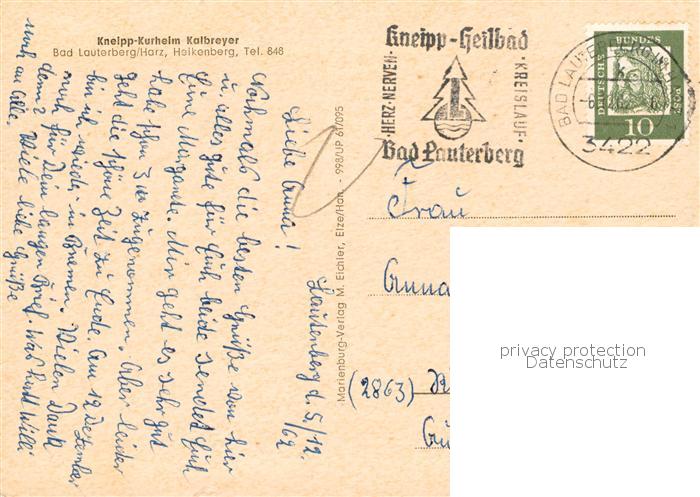 Kneipp-Kurheim Kalbreyer
Bad Lauterberg/Harz, Heikenberg, Tel. 848
Lautenberg d. 5/12.
62
Liebe Anna!
Nochmals die besten Grüße von hier
u. alles gute für Euch beide sendet Euch
Eine Margarete. Mir geht es sehr gut
habe schon 3 kg zugenommen. Aber leider
geht die schöne Zeit zu Ende. Am 12 Dezember
bin ich wieder in Bremen. Vielen Dank
auch für Dein langen Brief. Was hatt Willi
denn?
noch an alle. Viele liebe Grüße
Marienburg-Verlag M. Eichler, Elze/Han. - 998/UP 61/095
Kneipp-Heilbad
·HERZ·NERVEN·
·KREISLAUF·
L
Bad Lauterberg
BAD LAUTERBERG
3422
DEUTSCHE BUNDESPOST
10
Frau
Anna
(2863)
privacy protection
Datenschutz